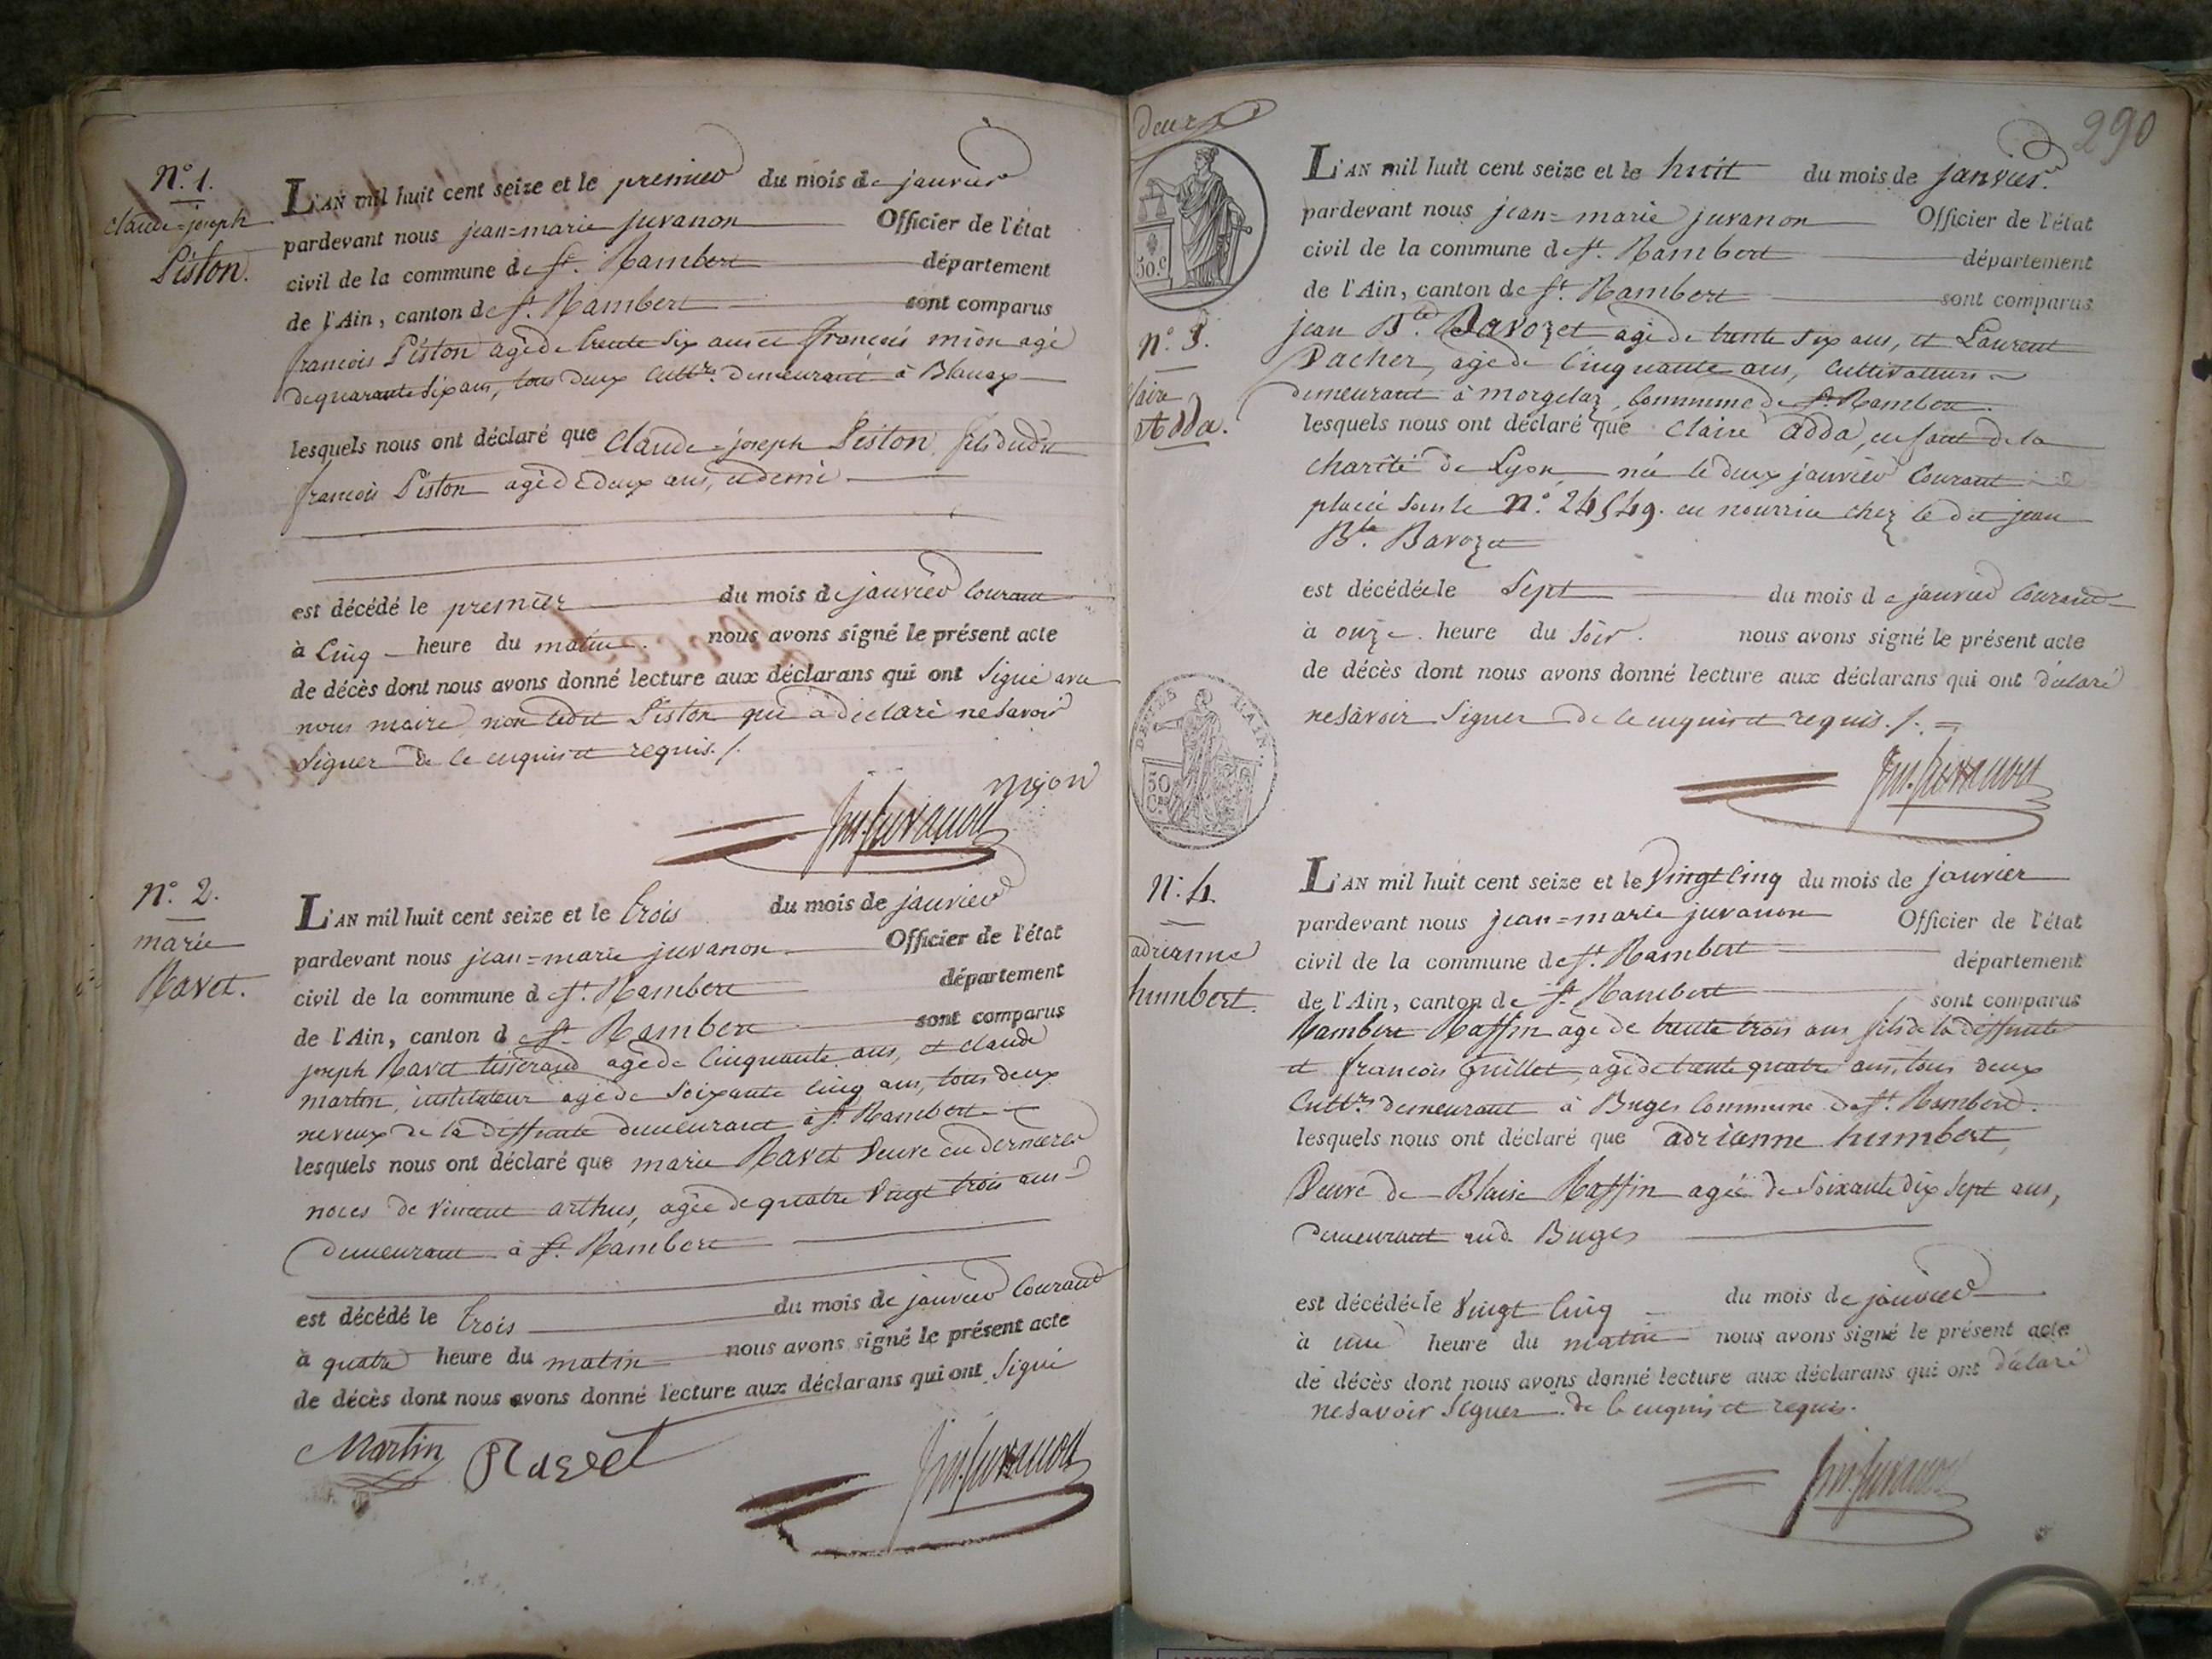 N.º 1.
claude=joseph
Piston.
L'AN mil huit cent seize et le premier du mois de janvier
pardevant nous jean=marie juvanon Officier de l'état
civil de la commune de St. Rambert département
de l'Ain, canton de St. Rambert sont comparus
francois Piston agé de trente six ans et francois mion agé
de quarante six ans, tous deux cultrs. demeurant à Blanaz
lesquels nous ont déclaré que Claude=joseph Piston, fils dudit
francois Piston agé de deux ans, et demi
est décédé le premier du mois de janvier Courant
à Cinq heure du matin. nous avons signé le présent acte
de décès dont nous avons donné lecture aux déclarans qui ont Signé avec
nous maire non ledit Piston qui a déclaré ne savoir
Signer de ce enquis et requis. /.
Mijon
Jm. Juvanon
N.º 2.
marie
Ravet.
L'AN mil huit cent seize et le trois du mois de janvier
pardevant nous jean=marie juvanon Officier de l'état
civil de la commune de St. Rambert département
de l'Ain, canton de St. Rambert sont comparus
joseph Ravet tisserand agé de Cinquante ans, et claude
martin, instituteur agé de Soixante cinq ans, tous deux
neveux de la deffunte demeurant à St. Rambert
lesquels nous ont déclaré que marie Ravet Veuve en dernieres
noces de Vincent arthus, agée de quatre Vingt trois ans
demeurant à St. Rambert
est décédé le trois du mois de janvier Courant
à quatre heure du matin nous avons signé le présent acte
de décès dont nous avons donné lecture aux déclarans qui ont Signé
Martin Ravet
Jm. Juvanon
deux
290
50.c
N.º 3.
Claire
Adda.
L'AN mil huit cent seize et le huit du mois de janvier.
pardevant nous jean=marie juvanon Officier de l'état
civil de la commune de St. Rambert département
de l'Ain, canton de St. Rambert sont comparus
jean Bte. Bavozet agé de trente six ans, et Laurent
Pacher, agé de Cinquante ans, Cultivateurs
demeurant à morgelaz, Commune de St. Rambert.
lesquels nous ont déclaré que Claire adda, enfant de la
charité de Lyon née le deux janvier Courant
placée sous le N.º 24549. en nourrice chez le dit jean
Bte. Bavozet
est décédée le Sept du mois de janvier Courant
à onze heure du Soir. nous avons signé le présent acte
de décès dont nous avons donné lecture aux déclarans qui ont déclaré
ne Savoir Signer de ce enquis et requis. /.
Jm. Juvanon
50
N.º 4.
adrianne
humbert.
L'AN mil huit cent seize et le Vingt Cinq du mois de janvier
pardevant nous jean=marie juvanon Officier de l'état
civil de la commune de St. Rambert département
de l'Ain, canton de St. Rambert sont comparus
Rambert Raffin agé de trente trois ans fils de la deffunte
et francois Guillet, agé de trente quatre ans, tous deux
Cultrs. demeurant à Buges Commune de St. Rambert.
lesquels nous ont déclaré que adrianne humbert,
Veuve de Blaise Raffin agée de Soixante dix Sept ans,
demeurant aud. Buges
est décédée le Vingt Cinq du mois de janvier
à une heure du matin nous avons signé le présent acte
de décès dont nous avons donné lecture aux déclarans qui ont déclaré
ne Savoir Signer de ce enquis et requis.
Jm. Juvanon